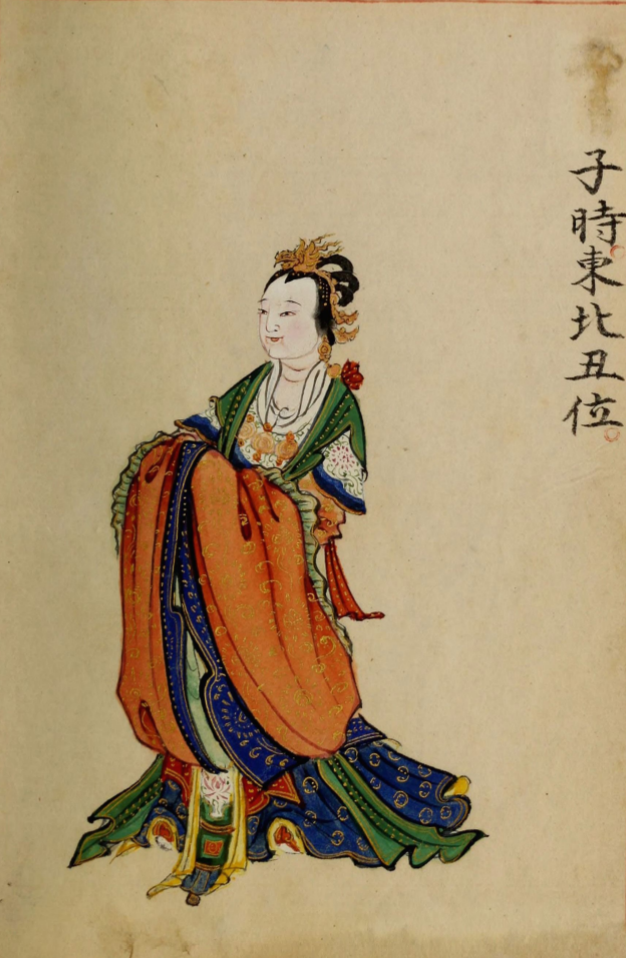 子時東北丑位